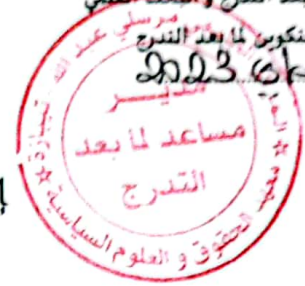 لتكوين لما بعد التدرج
2023
مرسلي عبد الله تيبازة
مدير
مساعد لما بعد
التدرج
معهد الحقوق و العلوم السياسية